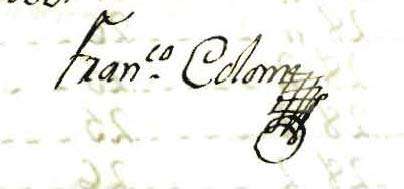 Fran.co Colom